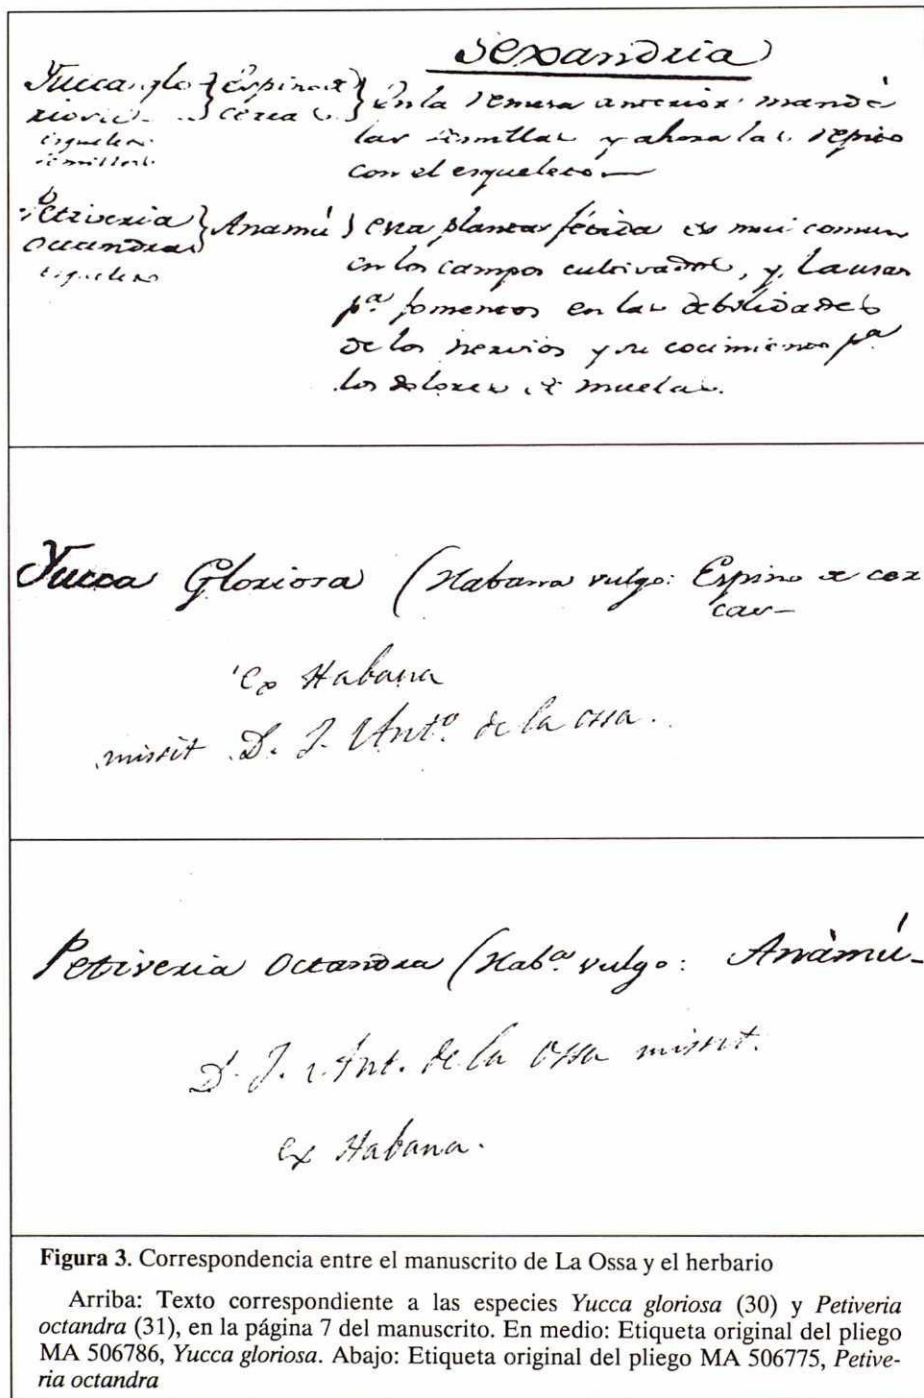 Sexandria
Yucca glo } Espino de } En la remesa anterior mandé
riosa cerca las semillas y ahora las repito
esqueleto con el esqueleto—
semillas
Petiveria } Anamú } esta planta fétida es mui comun
octandra en los campos cultivados, y la usan
esqueleto pª. fomentos en las debilidades
de los nervios y su cocimiento pª
los dolores de muelas.
Yucca Gloriosa (Habana vulgo: Espino de cer
cas—
ex Habana
missit D. J. Antº. de la Ossa.
Petiveria Octandra (Habª. vulgo: Anàmú—
D. J. Ant. de la Ossa missit.
ex Habana.
Figura 3. Correspondencia entre el manuscrito de La Ossa y el herbario
Arriba: Texto correspondiente a las especies Yucca gloriosa (30) y Petiveria
octandra (31), en la página 7 del manuscrito. En medio: Etiqueta original del pliego
MA 506786, Yucca gloriosa. Abajo: Etiqueta original del pliego MA 506775, Petive-
ria octandra